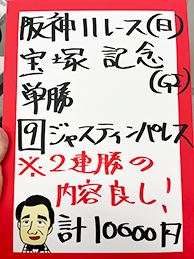 阪神11レース(日)
宝塚記念
(G2)
単勝
9 ジャスティンパレス
※2連勝の
内容良し!
計10000円